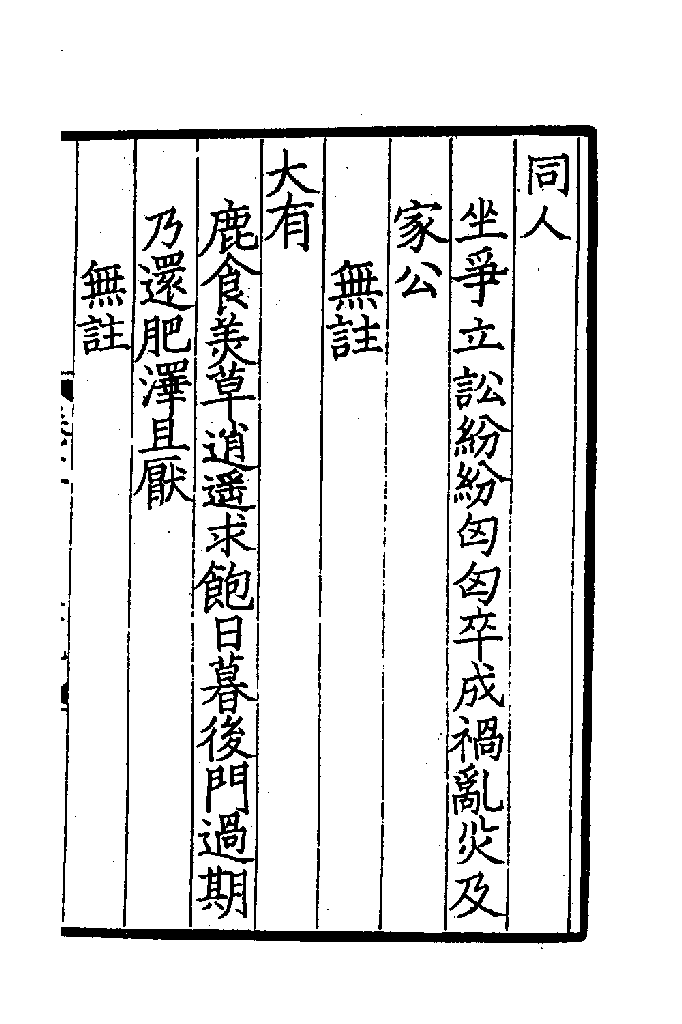 同人
坐爭立訟紛紛匈匈卒成禍亂災及
家公
無註
大有
鹿食美草逍遥求飽日暮後門過期
乃還肥澤且厭
無註